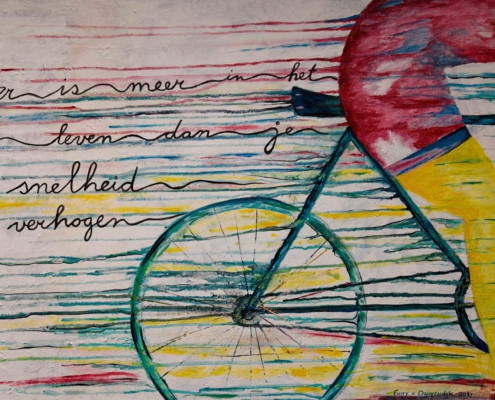 er is meer in het
leven dan je
snelheid
verhogen